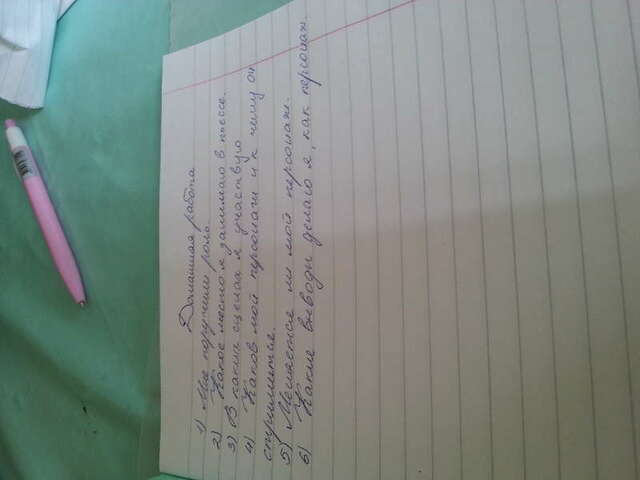 Домашняя работа
1) Мне поручили роль
2) Какое место я занимаю в пьессе.
3) В каких сценах я участвую
4) Каков мой персонаж и к чему он
стремится.
5) Меняется ли мой персонаж.
6) Какие выводы делаю я, как персонаж.